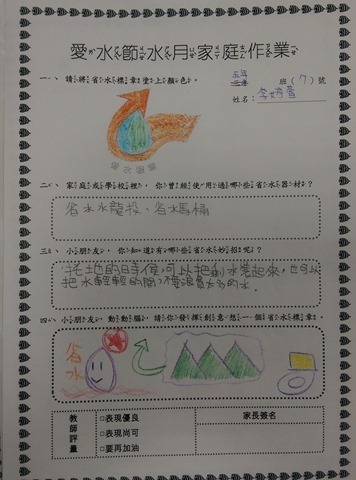 愛水節水月家庭作業
一、請將省水標章塗上顏色。
班(7)號
姓名：
省水標章
二、家庭或學校裡，你曾經使用過哪些省水器材？
省水水龍頭、省水馬桶
三、小朋友，你知道有哪些省水妙招呢？
拖地的時候，可以把剩水裝起來，也可以
把水輕輕的關，不要浪費太多的水。
四、小朋友，動動腦，請你發揮創意想一個省水標章。
省水
教師評量
□表現優良
□表現尚可
□要再加油
家長簽名